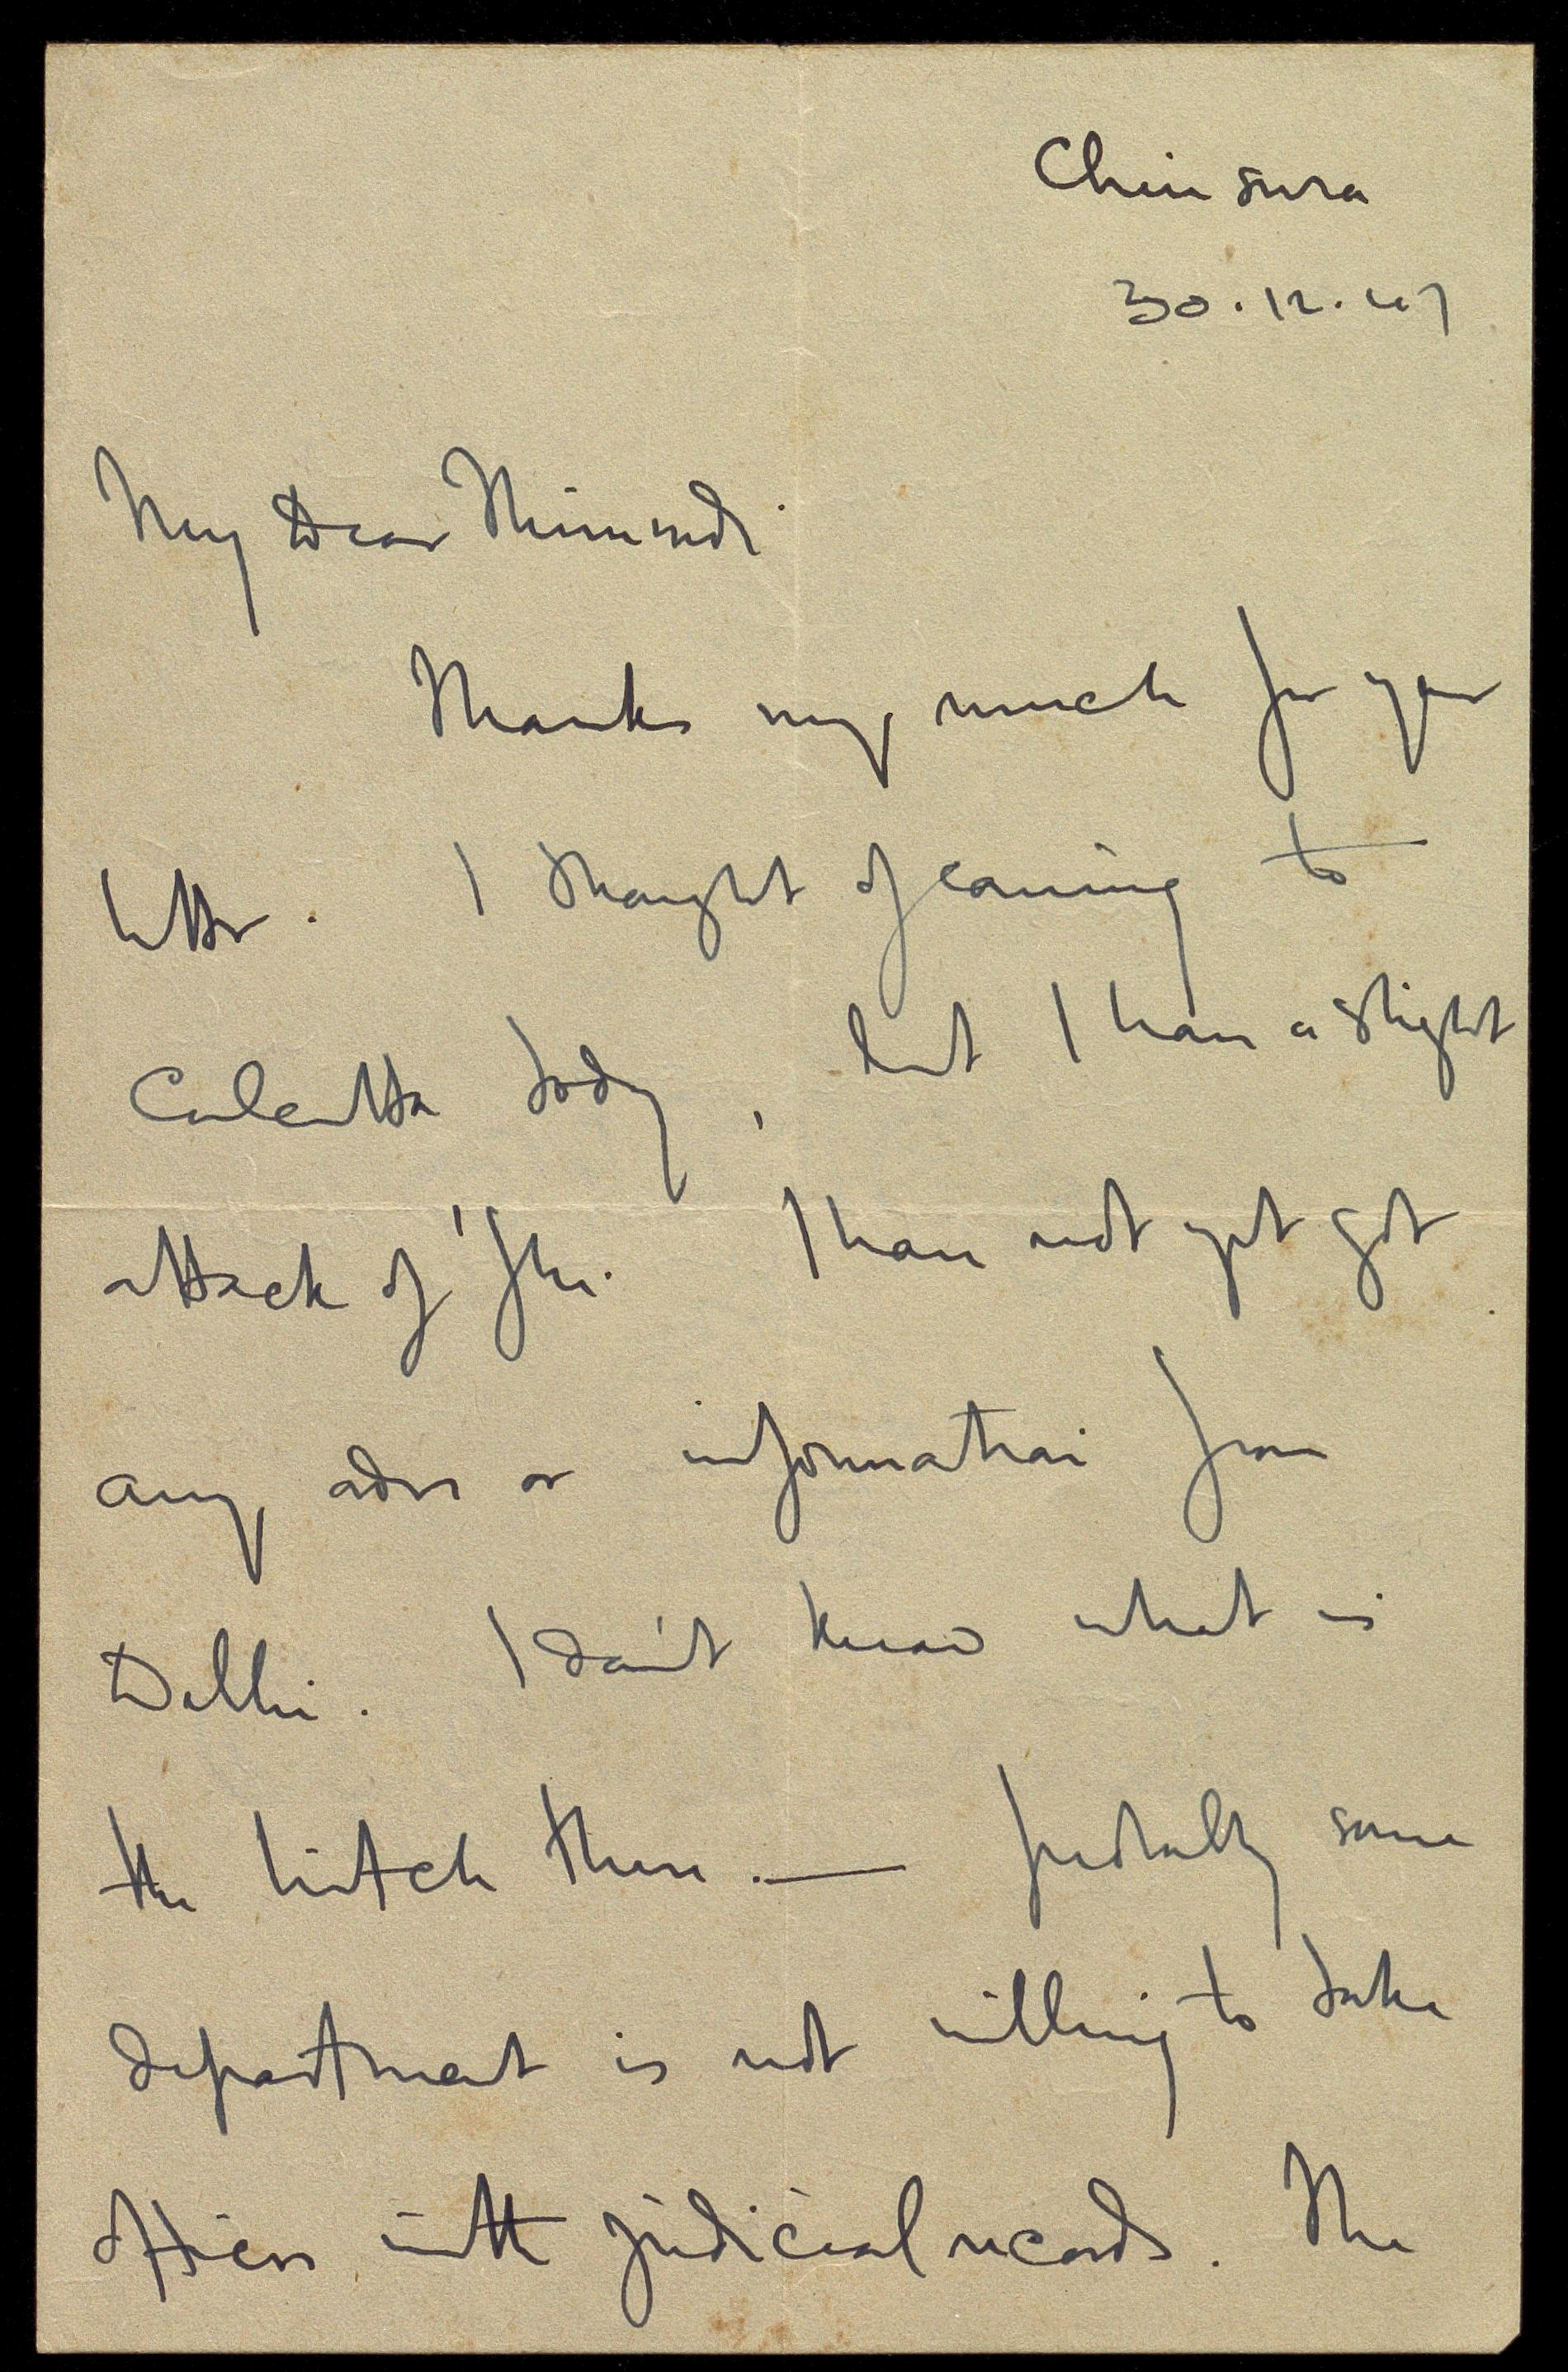 Chinsura
30.12.47
My Dear
Thanks very much for your
letter. I thought of coming to
Calcutta today, but I have a slight
attack of 'flu. I have not yet got
any or information from
Delhi. I don't know what is
the hitch there. — probably some
department is not willing to take
officers with judicial records. The